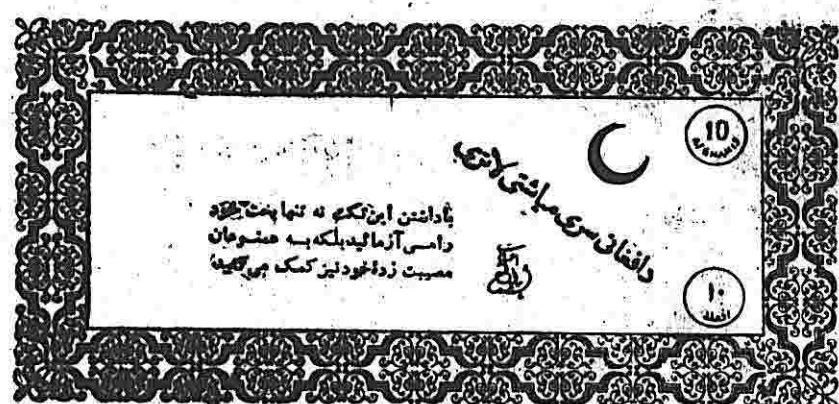 10
AFGHANIS
د افغانی سری میاشتی لاتری
با داشتن این تکت نه تنها بخت خود
را می آزمائید بلکه به همنوعان
مصیبت زدهٔ خود نیز کمک می کنید
۱۰